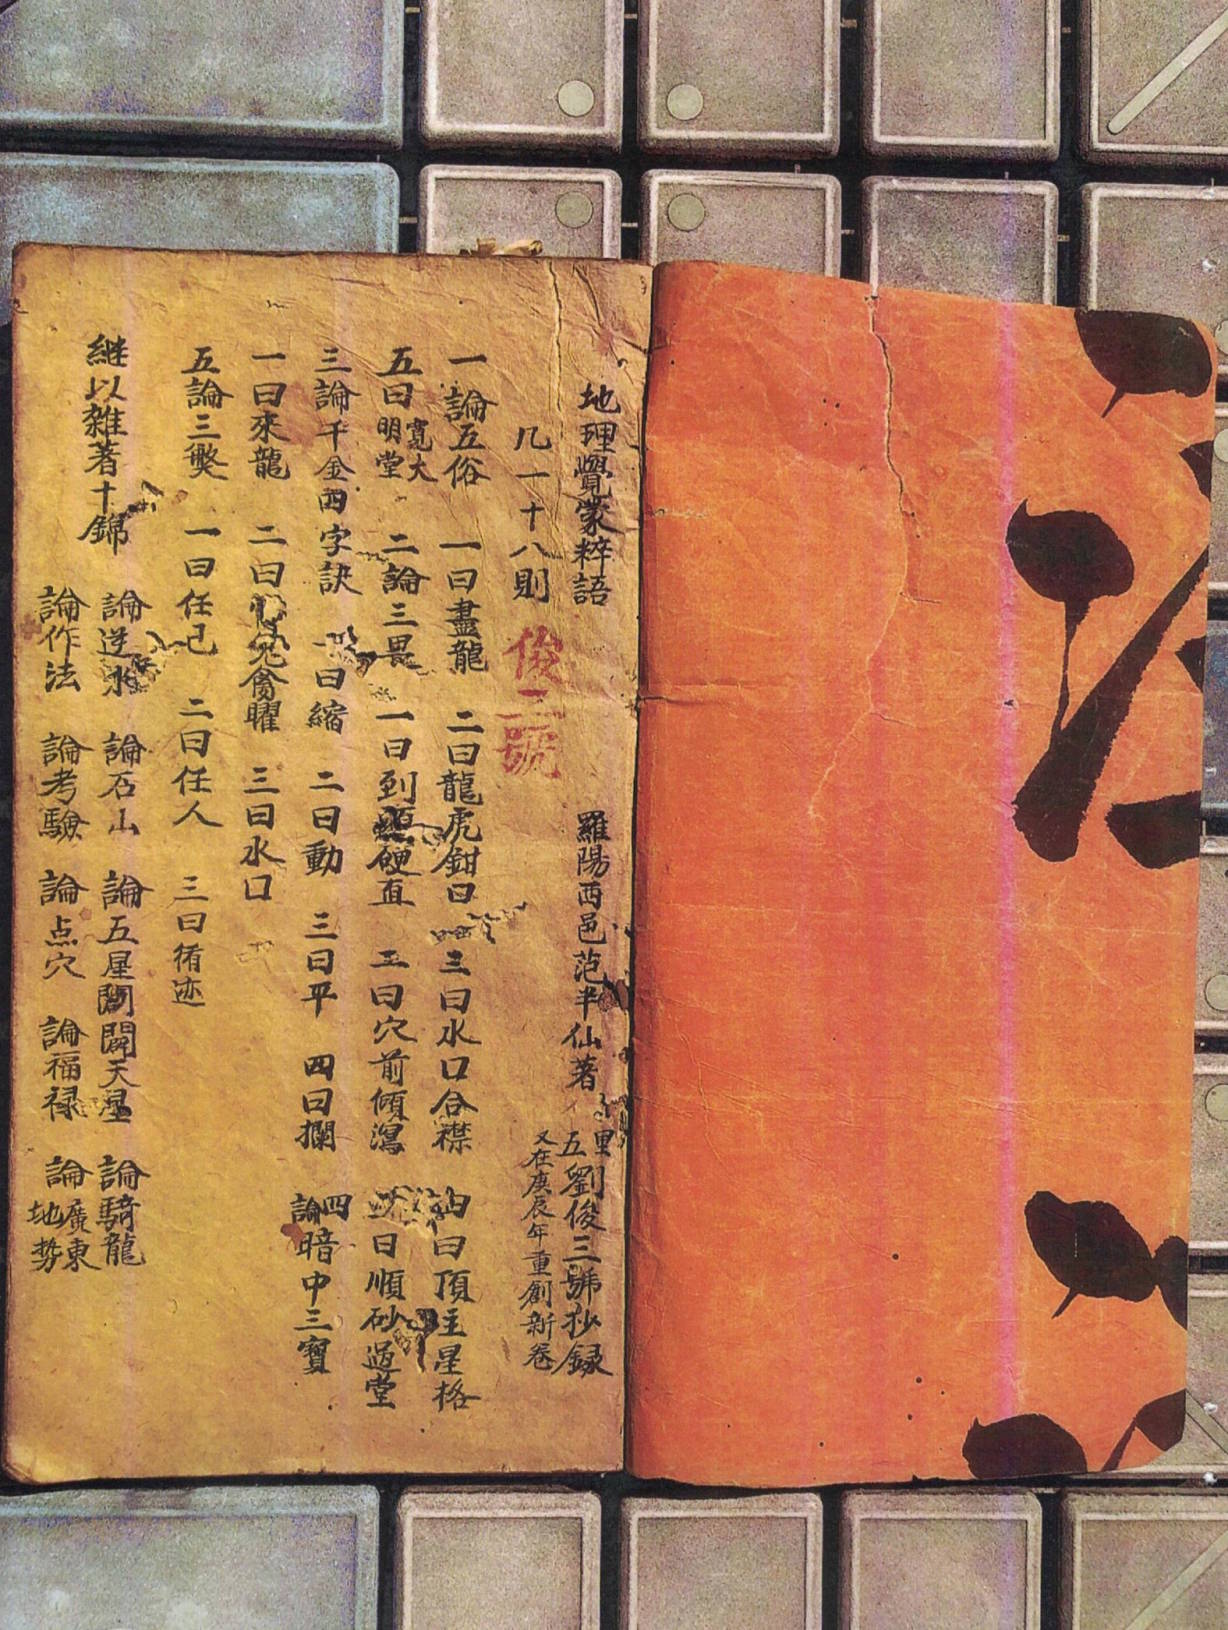 地理覺蒙粹語　羅陽西邑范半仙著　里五劉俊三號抄録
又在庚辰年重創新卷
凡一十八則　俊三號
一論五俗　一曰盡龍　二曰龍虎鉗口　三曰水口合襟　曰頂主星格
五曰寬大明堂　二論三畏　一曰到頭硬直　二曰穴前傾瀉　曰順砂過堂
三論千金四字訣　一曰縮　二曰動　三曰平　四曰攔　四論暗中三寶
一曰來龍　二曰禽曜　三曰水口
五論三弊　一曰任己　二曰任人　三曰循迹
継以雑著十錦　論逆水　論石山　論五星　闗天星　論騎龍
論作法　論考驗　論点穴　論福禄　論廣東地势